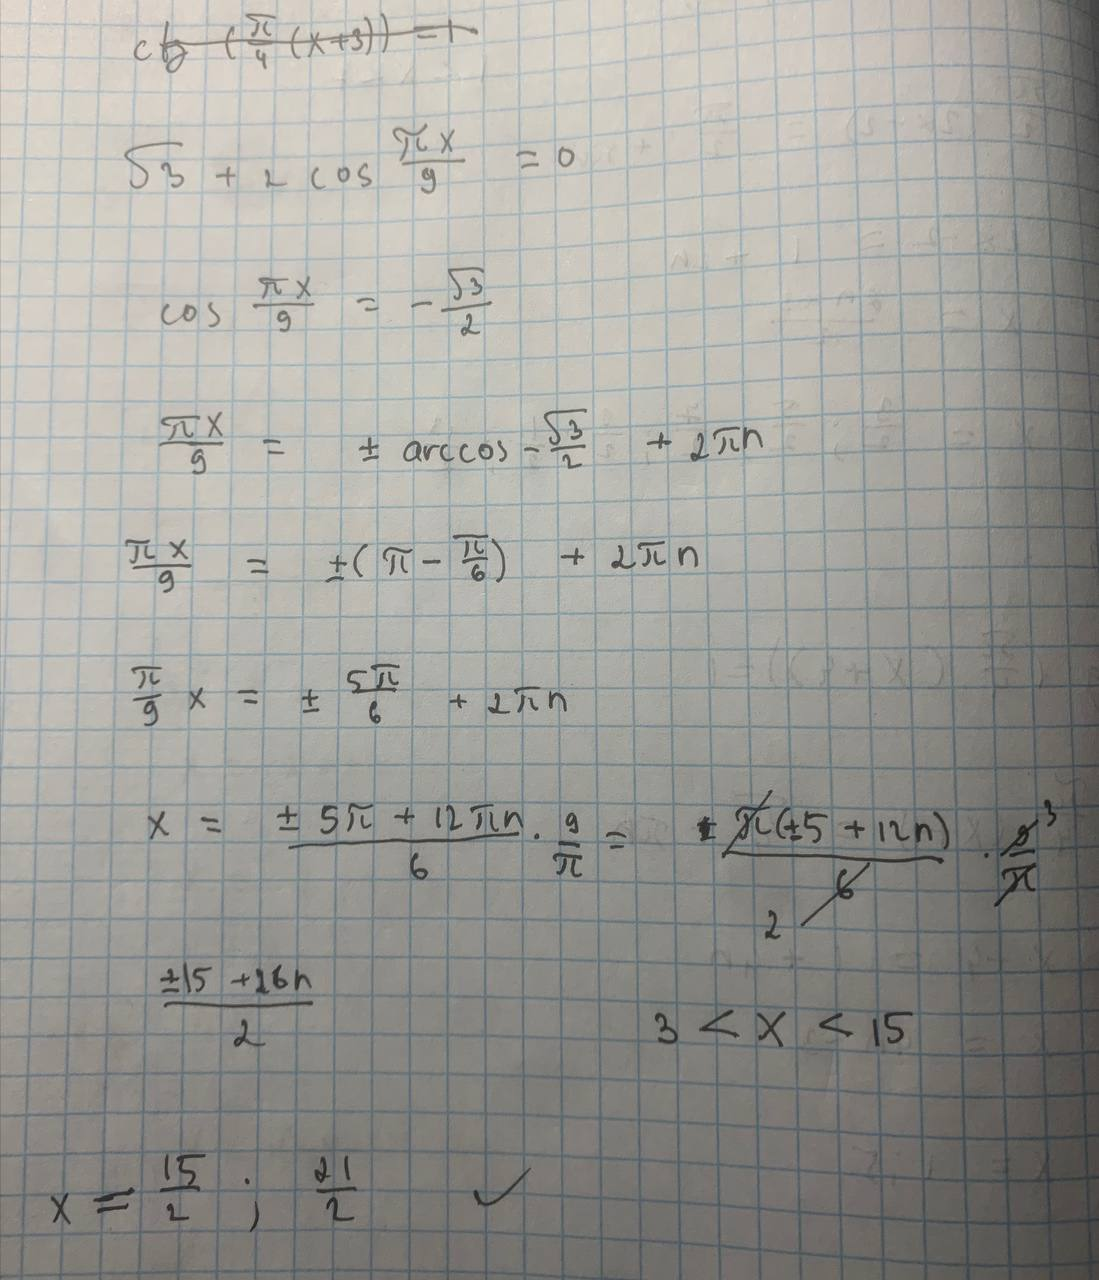 ctg (π/4 (x+3)) = 1
√3 + 2 cos πx/9 = 0
cos πx/9 = - √3/2
πx/9 = ± arccos - √3/2 + 2πn
πx/9 = ±(π - π/6) + 2πn
π/9 x = ± 5π/6 + 2πn
x = (± 5π + 12πn)/6 · 9/π = π(±5 + 12n)/6 · 9/π 3
2
(±15 + 36n)/2
3 < x < 15
x = 15/2 ; 21/2 ✓